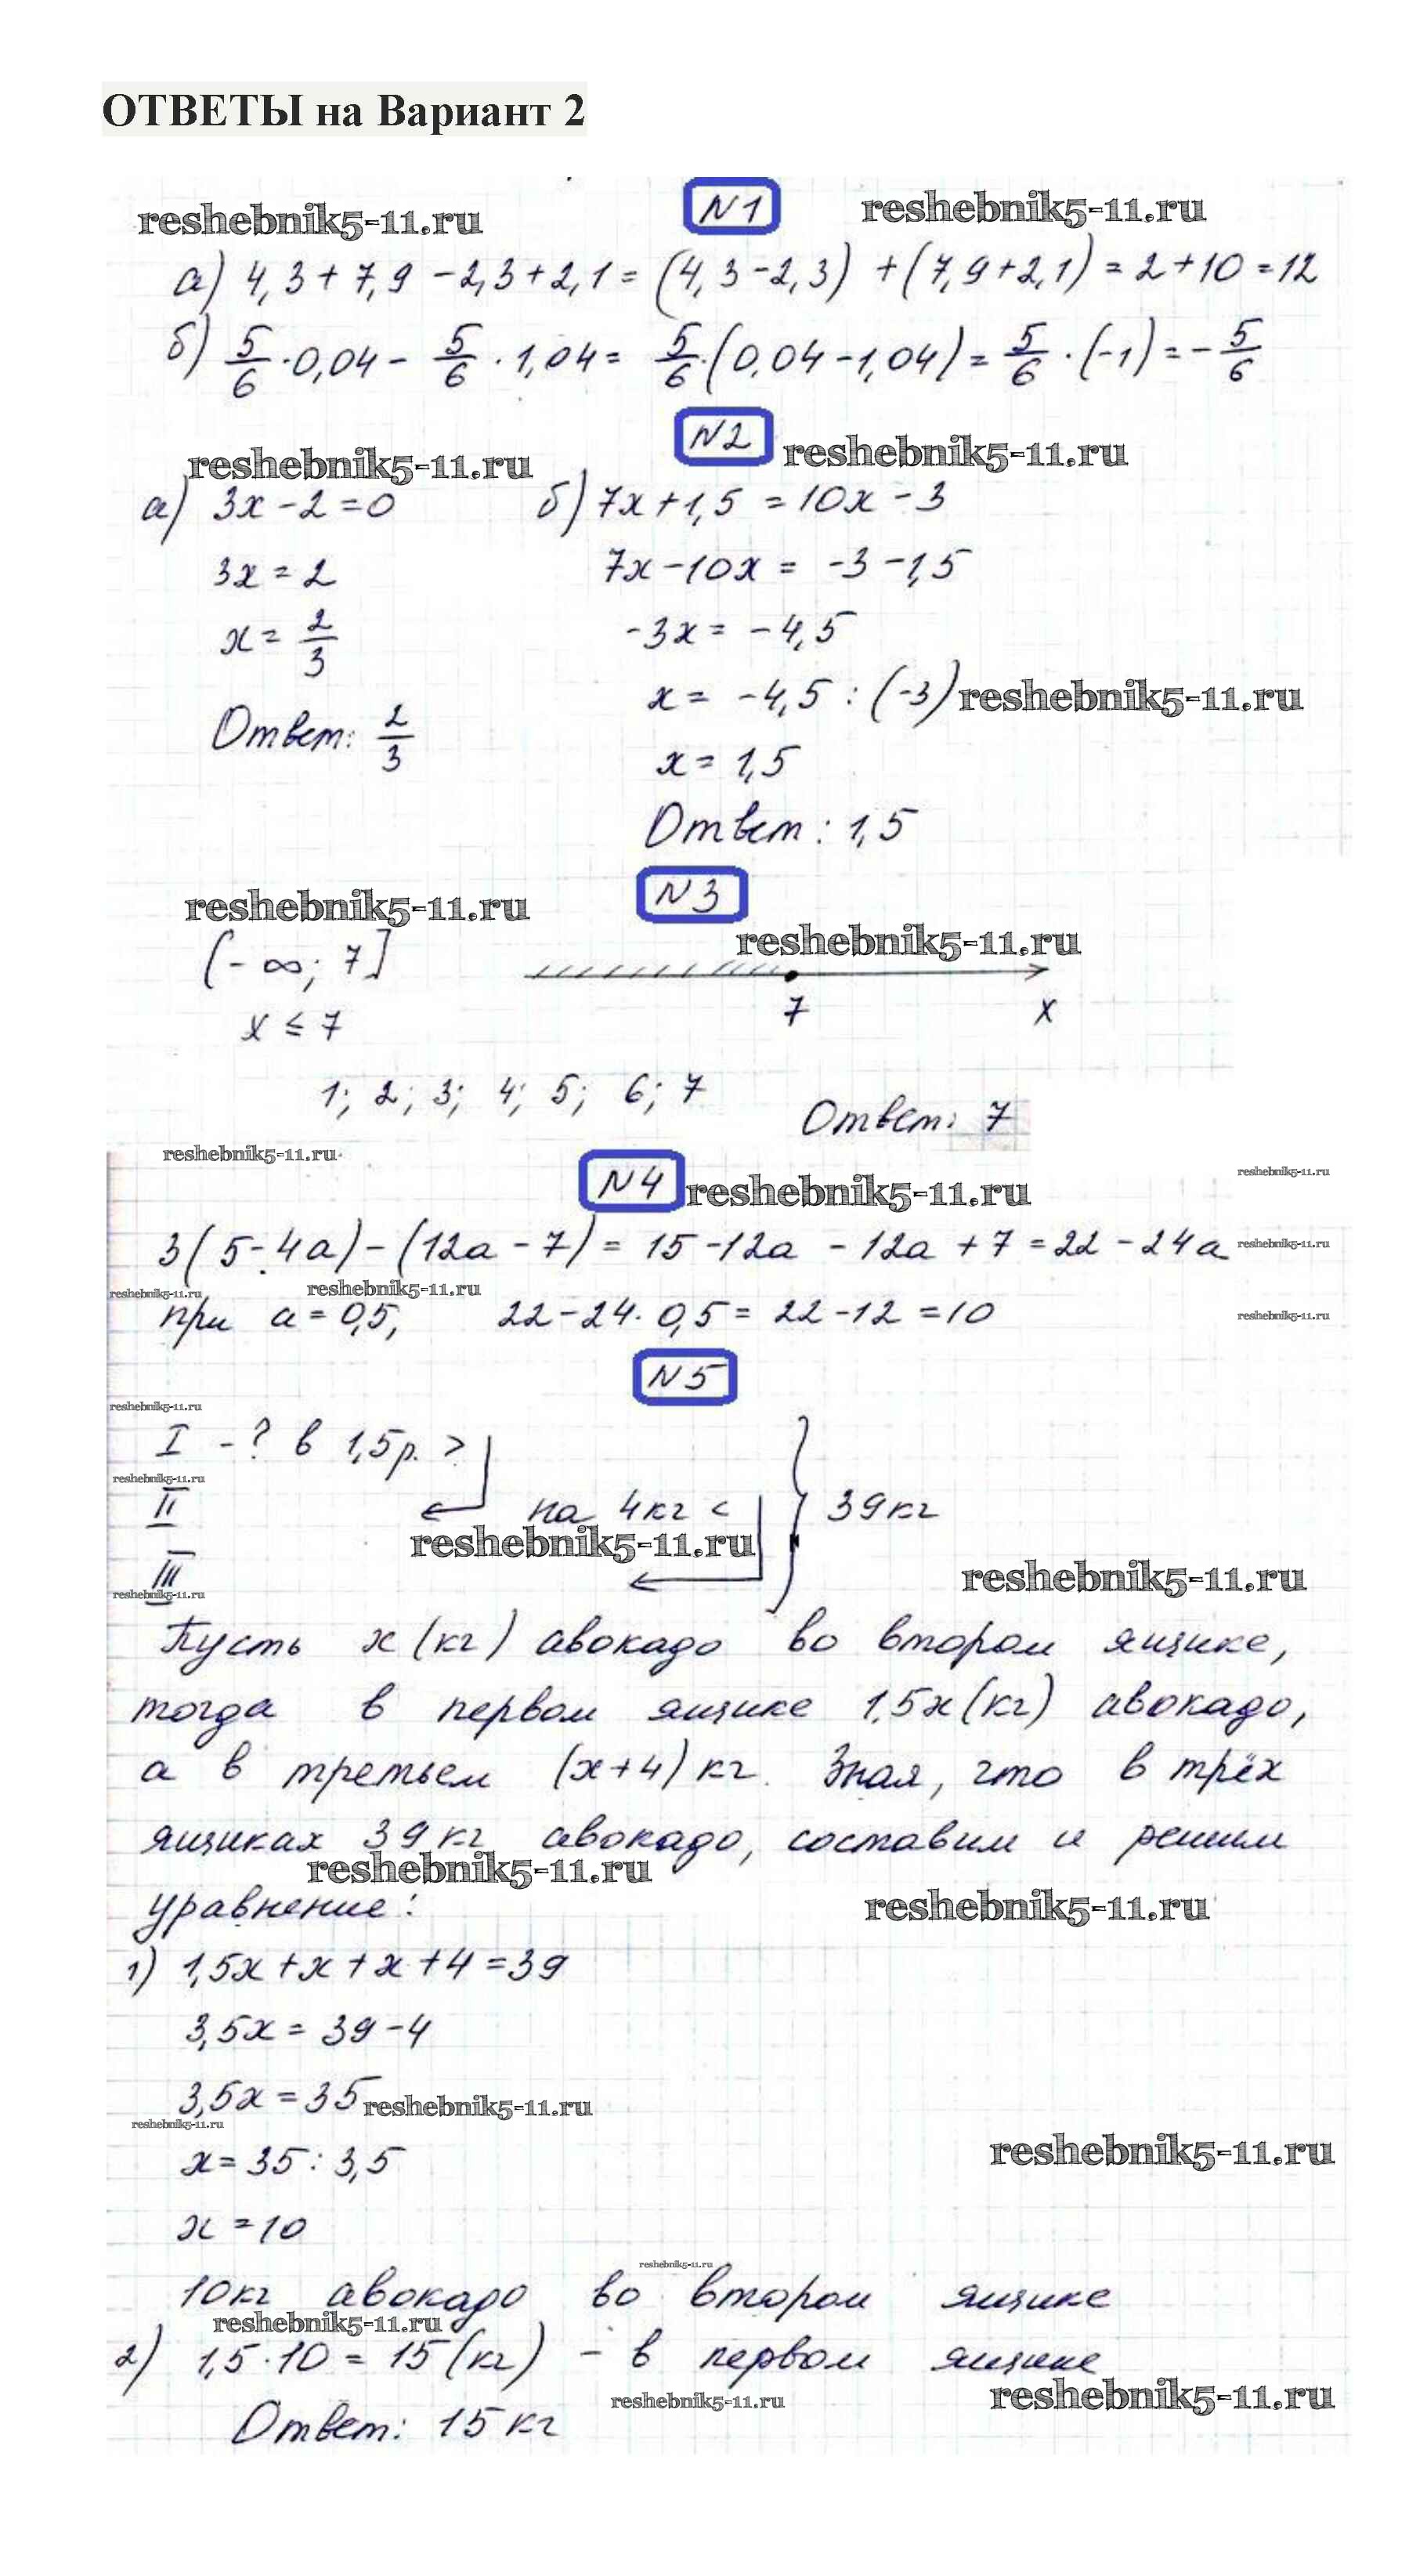 ОТВЕТЫ на Вариант 2
N1
reshebnik5-11.ru reshebnik5-11.ru
а) 4,3 + 7,9 - 2,3 + 2,1 = (4,3 - 2,3) + (7,9 + 2,1) = 2 + 10 = 12
б) 5/6 · 0,04 - 5/6 · 1,04 = 5/6 · (0,04 - 1,04) = 5/6 · (-1) = - 5/6
N2
reshebnik5-11.ru reshebnik5-11.ru
а) 3x - 2 = 0 б) 7x + 1,5 = 10x - 3
3x = 2 7x - 10x = -3 - 1,5
x = 2/3 -3x = -4,5
x = -4,5 : (-3) reshebnik5-11.ru
Ответ: 2/3
x = 1,5
Ответ: 1,5
N3
reshebnik5-11.ru
reshebnik5-11.ru
(-∞; 7]
7 x
x ≤ 7
1; 2; 3; 4; 5; 6; 7
Ответ: 7
reshebnik5-11.ru
N4 reshebnik5-11.ru reshebnik5-11.ru
3(5 - 4a) - (12a - 7) = 15 - 12a - 12a + 7 = 22 - 24a reshebnik5-11.ru
reshebnik5-11.ru reshebnik5-11.ru
при a = 0,5, 22 - 24 · 0,5 = 22 - 12 = 10 reshebnik5-11.ru
N5
reshebnik5-11.ru
I - ? в 1,5 р. >
reshebnik5-11.ru
II на 4 кг < 39 кг
reshebnik5-11.ru
III reshebnik5-11.ru
reshebnik5-11.ru
Пусть x (кг) авокадо во втором ящике,
тогда в первом ящике 1,5x (кг) авокадо,
а в третьем (x + 4) кг. Зная, что в трёх
ящиках 39 кг авокадо, составим и решим
reshebnik5-11.ru
уравнение: reshebnik5-11.ru
1) 1,5x + x + x + 4 = 39
3,5x = 39 - 4
3,5x = 35 reshebnik5-11.ru
reshebnik5-11.ru
x = 35 : 3,5 reshebnik5-11.ru
x = 10
reshebnik5-11.ru
10 кг авокадо во втором ящике
reshebnik5-11.ru
2) 1,5 · 10 = 15 (кг) - в первом ящике
reshebnik5-11.ru reshebnik5-11.ru
Ответ: 15 кг